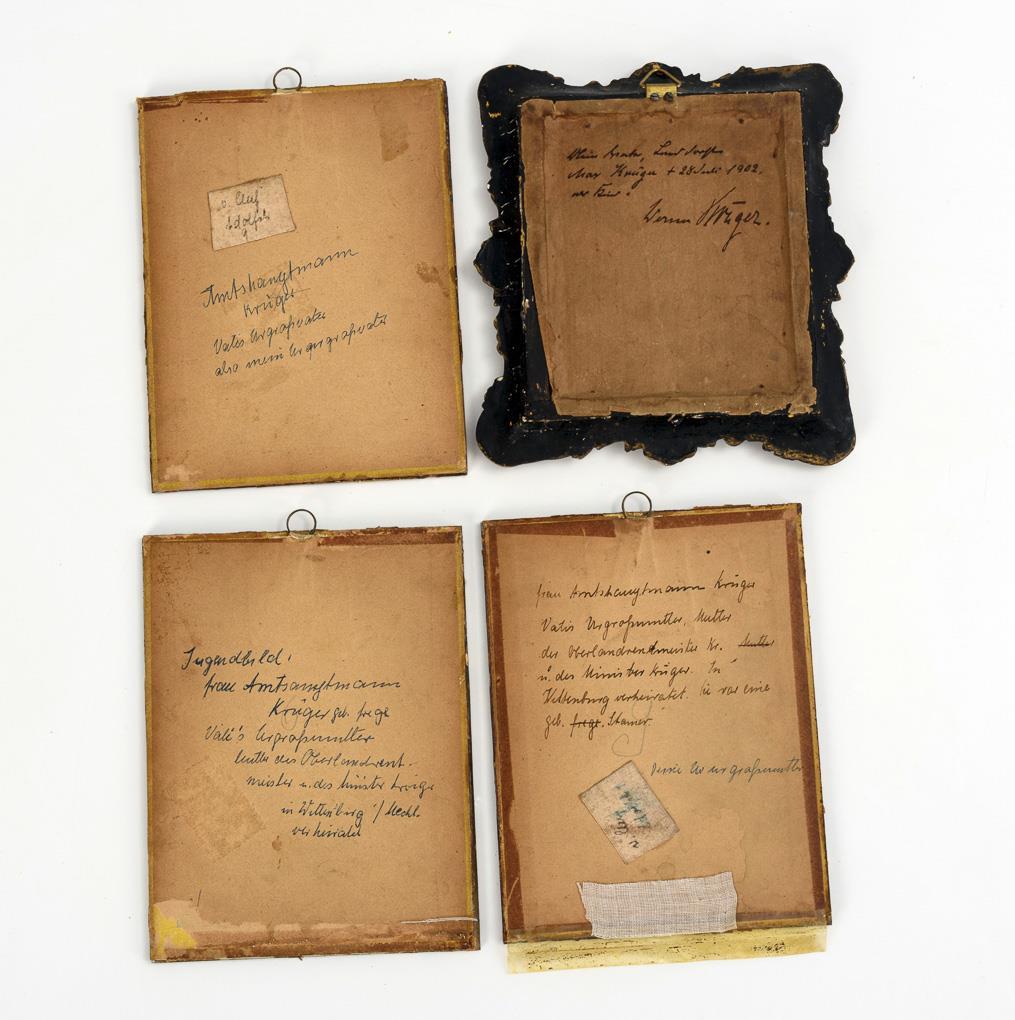 Adolfs
Amtshauptmann
Krüger
Vatis Urgroßvater
also mein Ururgroßvater
Max Krüger + 28 Juli 1902.
Krüger.
Jugendbild.
frau Amtsauptmann
Krüger geb. frege
Vati's Urgroßmutter
Mutter des Oberlandrent-
meister u. des Minister Krüger
in Wittenburg / Meckl.
verheiratet
frau Amtshauptmann Krüger
Vatis Urgroßmutter, Mutter
des Oberlandrentmeister Kr. Mutter
u. des Minister Krüger. In
Wittenburg verheiratet. Sie war eine
geb. frege. Stamer.
Ururgroßmutter